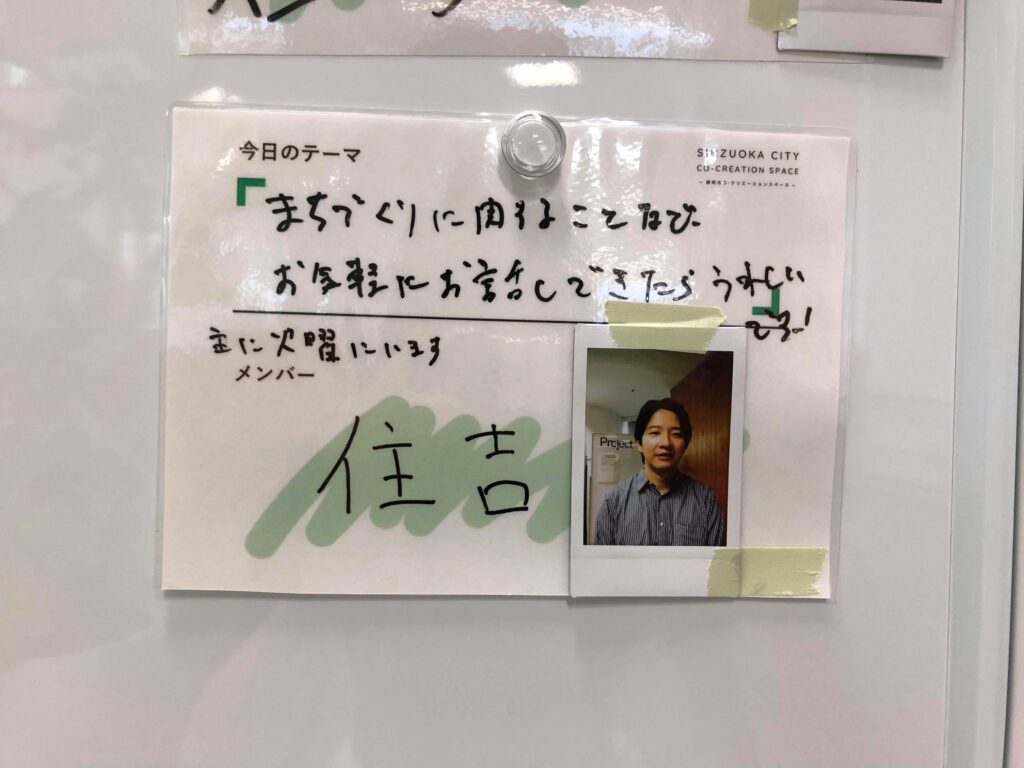 今日のテーマ
SHIZUOKA CITY
CO-CREATION SPACE
- 静岡市コ・クリエーションスペース -
「まちづくりに関することなど、
お気軽にお話しできたらうれしい」
です。!
主に火曜にいます
メンバー
住吉
Project